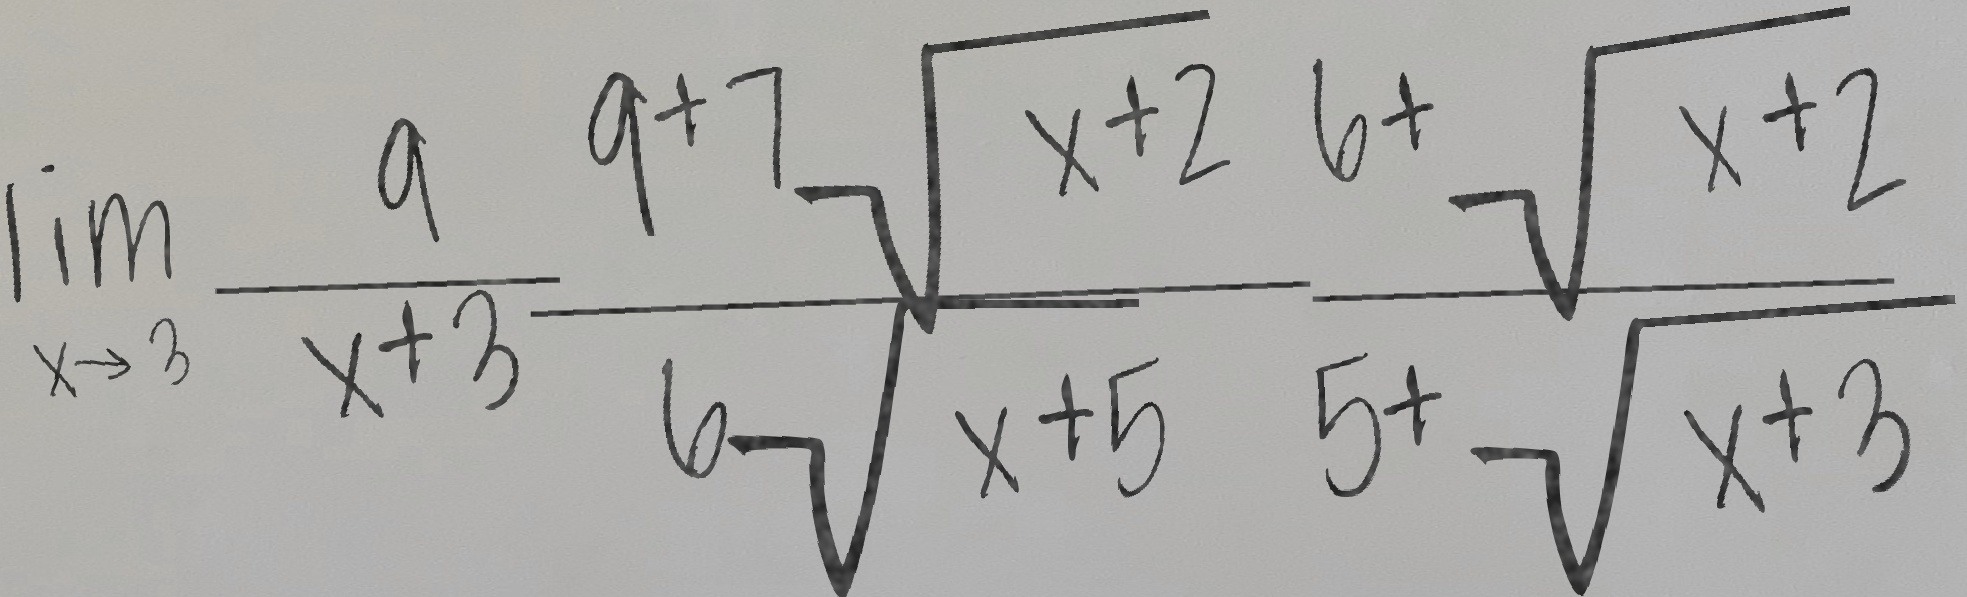 \lim_{x \to 3} \frac{9}{x+3} \frac{9+7\sqrt{x+2}}{6\sqrt{x+5}} \frac{6+\sqrt{x+2}}{5+\sqrt{x+3}}